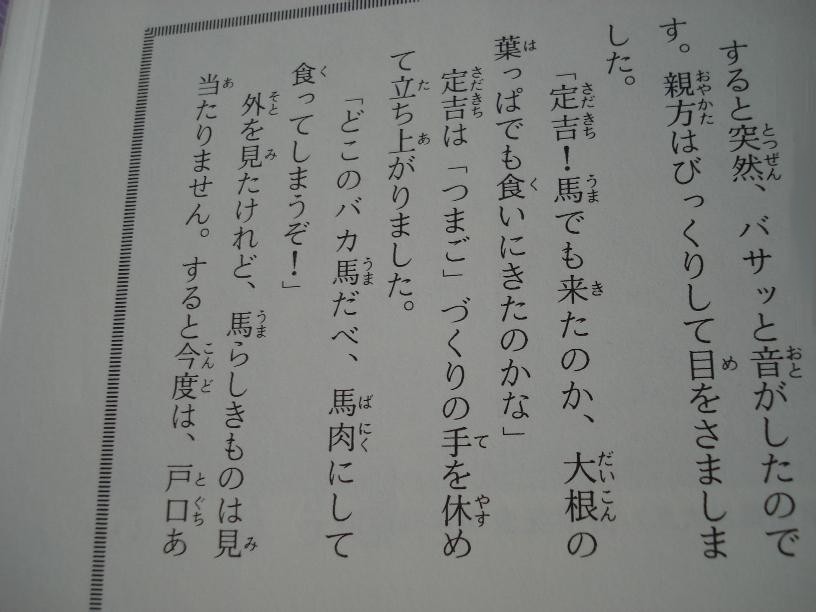 すると突然、バサッと音がしたので
す。親方はびっくりして目をさましま
した。
「定吉！馬でも来たのか、大根の
葉っぱでも食いにきたのかな」
定吉は「つまご」づくりの手を休め
て立ち上がりました。
「どこのバカ馬だべ、馬肉にして
食ってしまうぞ！」
外を見たけれど、馬らしきものは見
当たりません。すると今度は、戸口あ